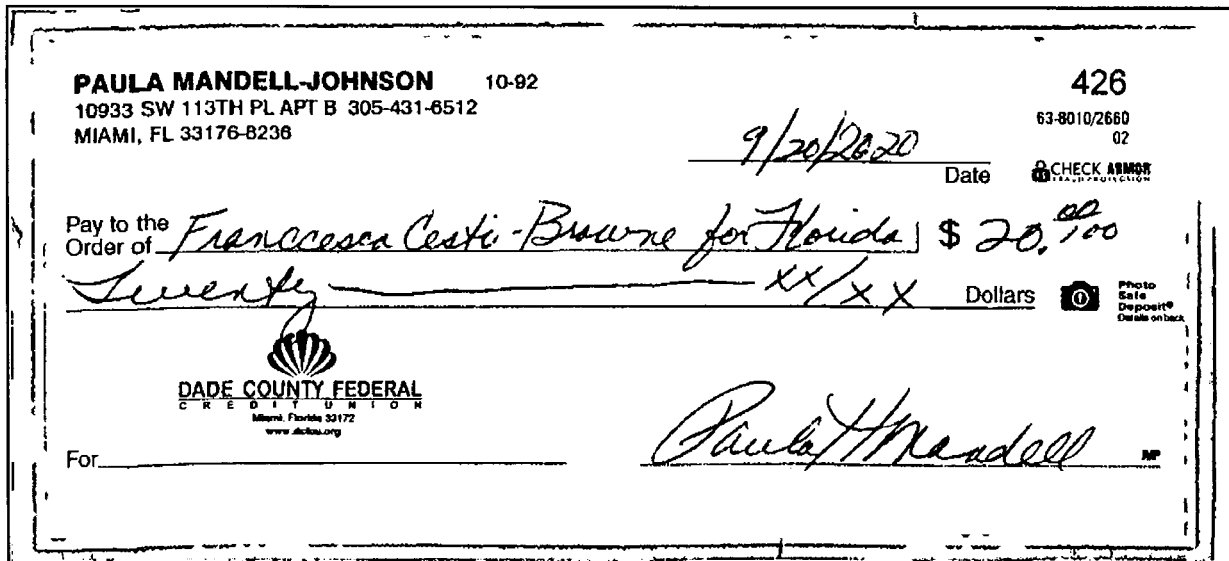 PAULA MANDELL-JOHNSON 10-92 426
10933 SW 113TH PL APT B 305-431-6512 63-8010/2660
MIAMI, FL 33176-8236 02
9/20/2020
Date CHECK ARMOR
FRAUD PROTECTION
Pay to the
Order of Franccesca Cesti-Browne for Florida $ 20.00/100
Twenty xx/xx Dollars
Photo
Safe
Deposit®
Details on back
DADE COUNTY FEDERAL
CREDIT UNION
Miami, Florida 33172
www.dcfcu.org
For Paula H Mandell MP